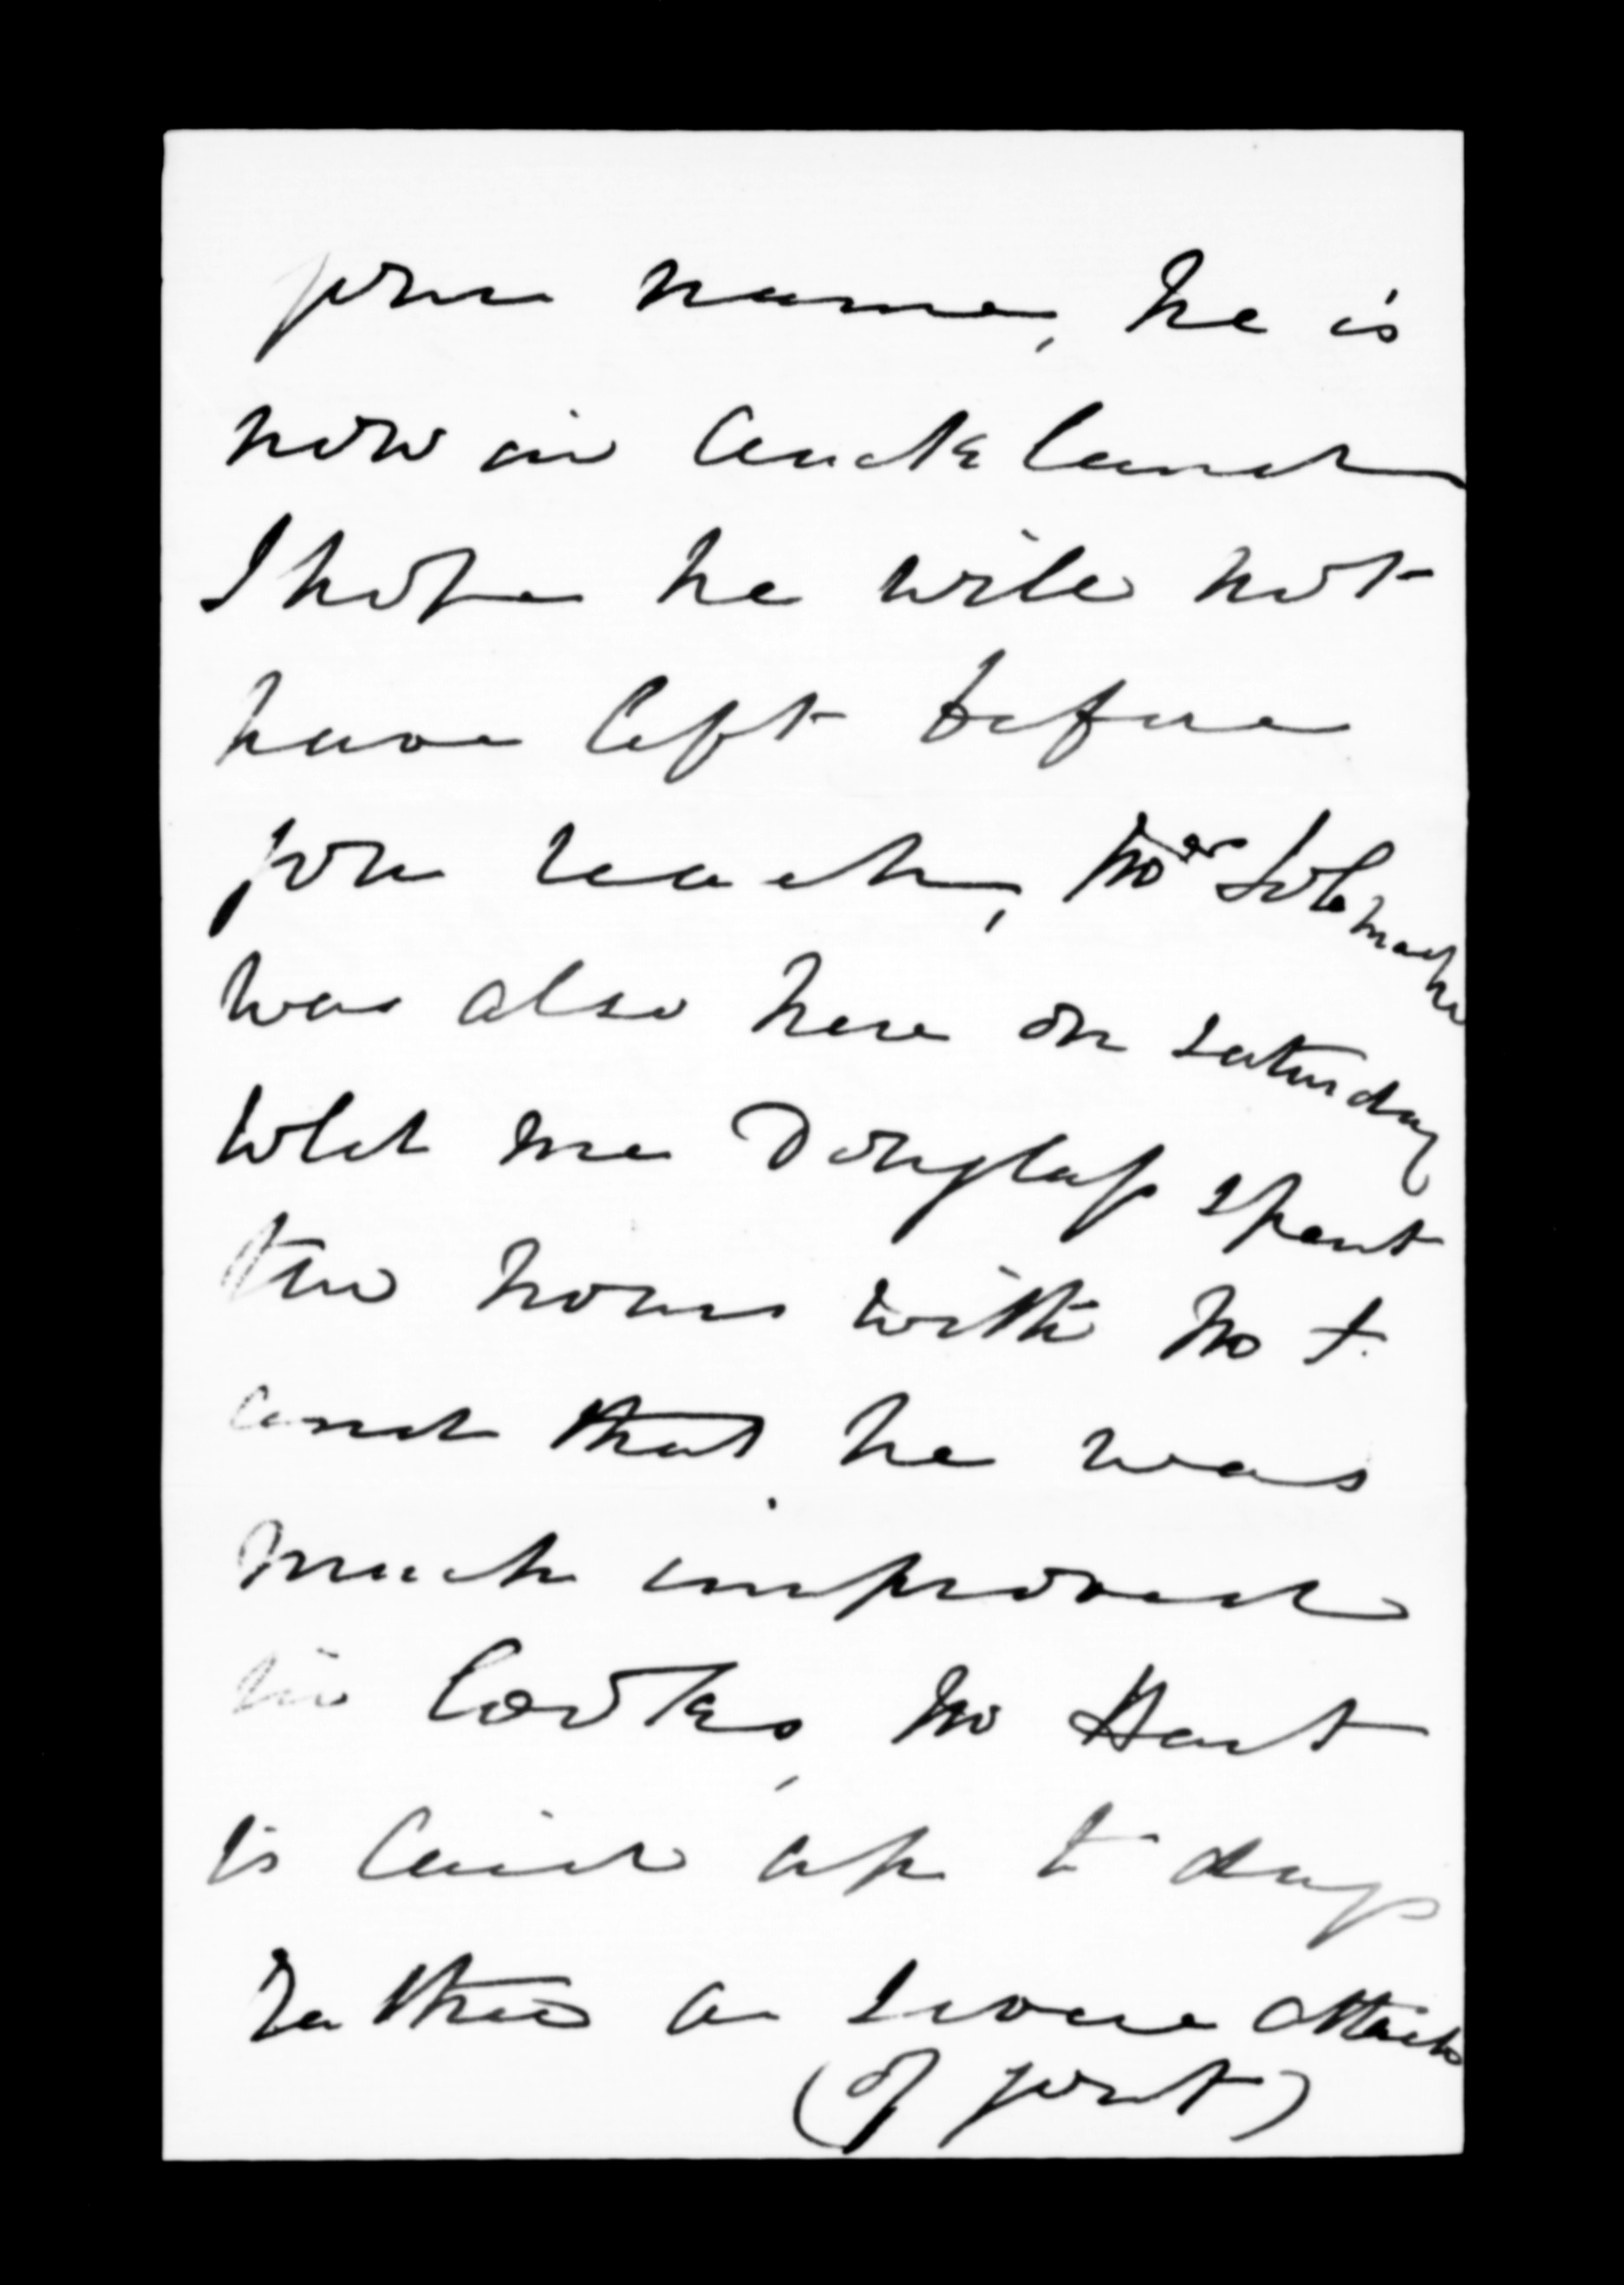 your name, he is
now in Auckland
I hope he will not
have left before
you reach, Mrs Tolemache
was also here on Saturday
told me Douglass spent
two hours with Mr T.
and that he was
much improved
in looks, Mr Hart
is laid up to day
rather a severe attack
(of gout)